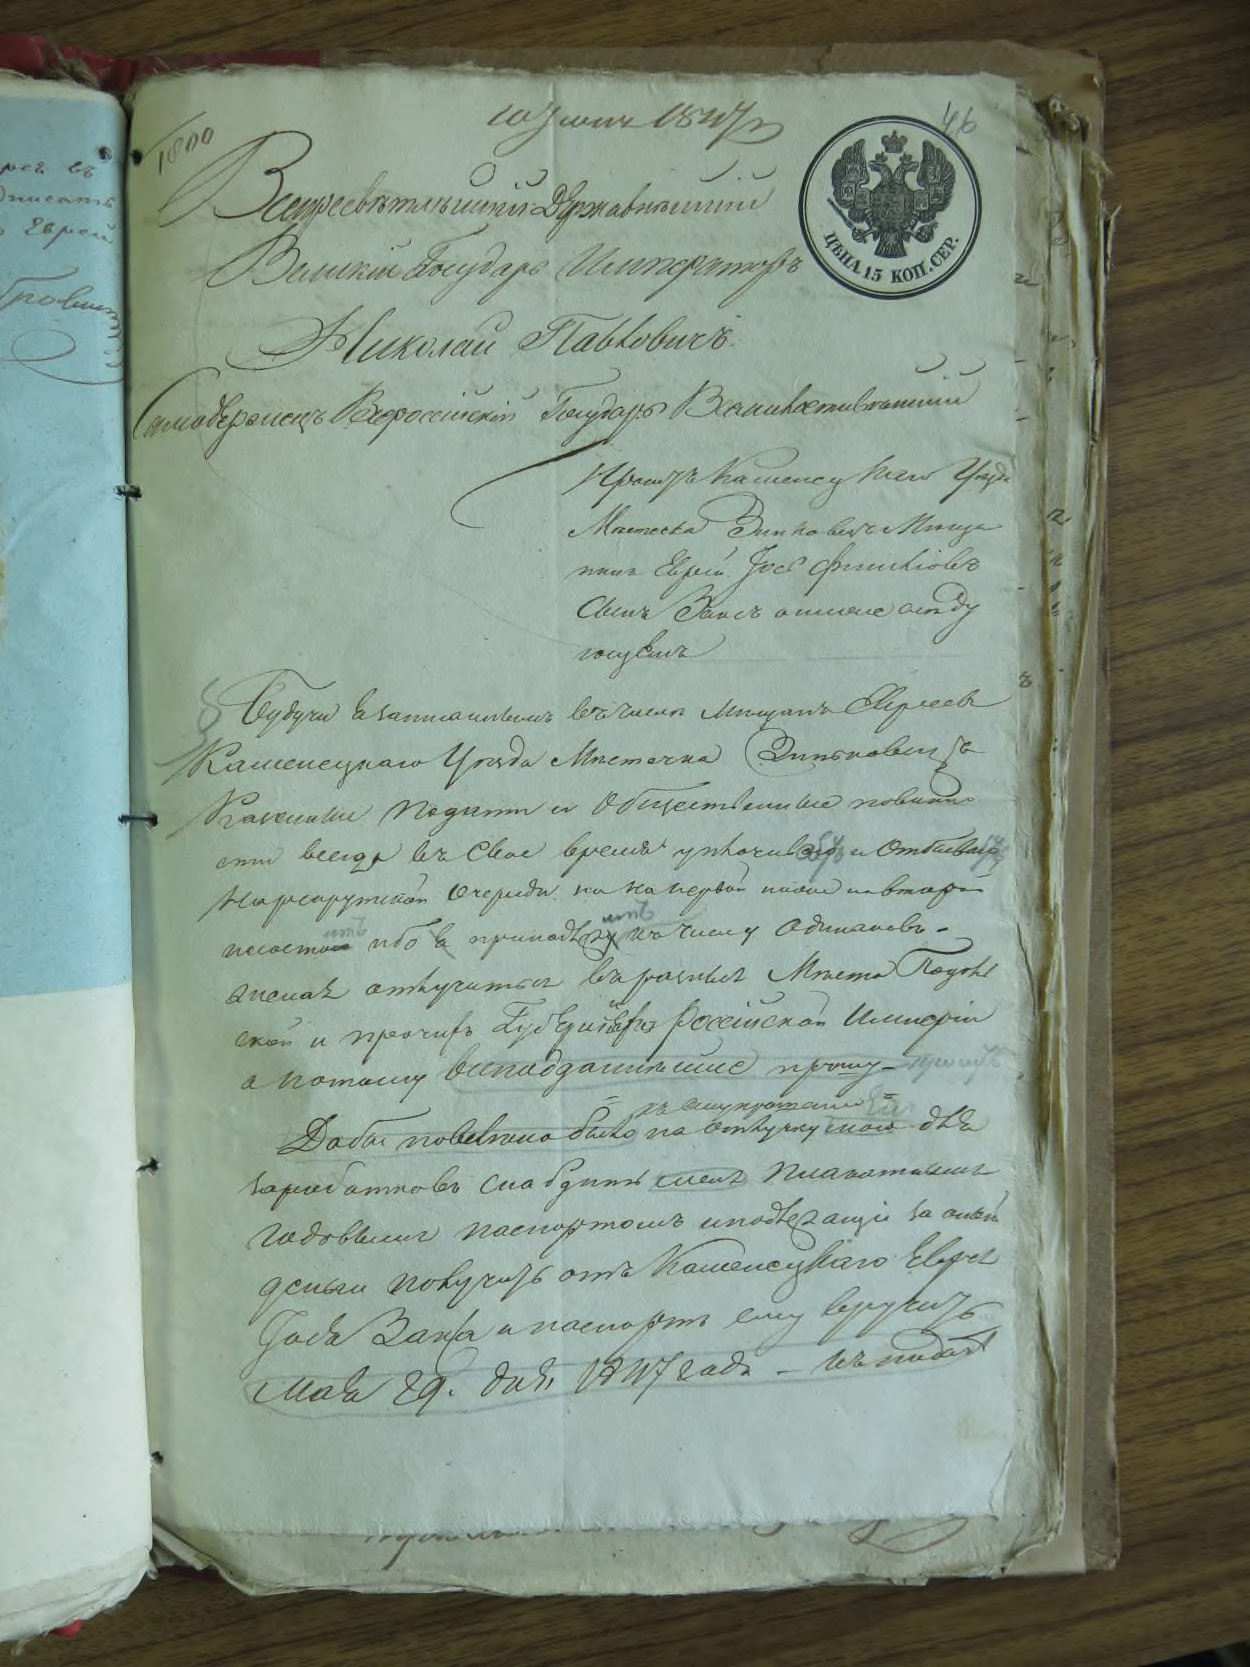 46
1800
10 Июня 1847
ЦѢНА 15 КОП. СЕР.
Всепресветлѣйшій Державнѣйшій
Великій Государь Императоръ
Николай Павловичъ
Самодержецъ Всероссійскій Государь Всемилостивѣйшій
Проситъ Каменецкаго Уѣзда
Мѣстечка Зиньковецъ Мѣща
нинъ Еврей Іось
Сынъ Ваксъ о нижеслѣду
ющемъ
Будучи я записаннымъ въ число мѣщанъ Евреевъ
Каменецкаго Уѣзда Мѣстечка Зиньковецъ
Казенные подати и общественные повинно
сти всегда въ свое время уплочиваю и отбываю
На рекрутской очереди ни на первой ниже на второй
не состою ибо я принадлежу къ числу одинаковъ
желая отлучиться въ разные Мѣста Подоль
ской и прочихъ Губерній Россійской Имперіи
а потому всеподданнѣйше прошу
къ
Дабы повелѣно было на отлучку мою для
заработковъ снабдить меня плакатнымъ
годовымъ паспортомъ и подлежащіе за оный
деньги получить отъ Каменецкаго Еврея
Вакса и паспортъ ему вручить
Мая 29. дня 1847 года – къ подачѣ